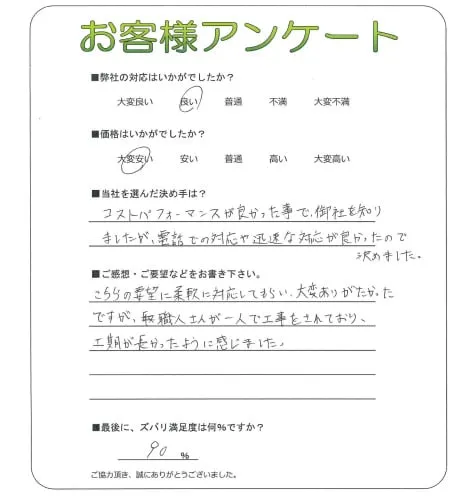 お客様アンケート
■弊社の対応はいかがでしたか？
大変良い 良い 普通 不満 大変不満
■価格はいかがでしたか？
大変安い 安い 普通 高い 大変高い
■当社を選んだ決め手は？
コストパフォーマンスが良かった事で、御社を知り
ましたが、電話での対応や迅速な対応が良かったので
決めました。
■ご感想・ご要望などをお書き下さい。
こちらの要望に柔軟に対応してもらい、大変ありがたかった
ですが、職人さんが一人で工事をされており、
工期が長かったように感じました。
■最後に、ズバリ満足度は何%ですか？
90 %
ご協力頂き、誠にありがとうございました。